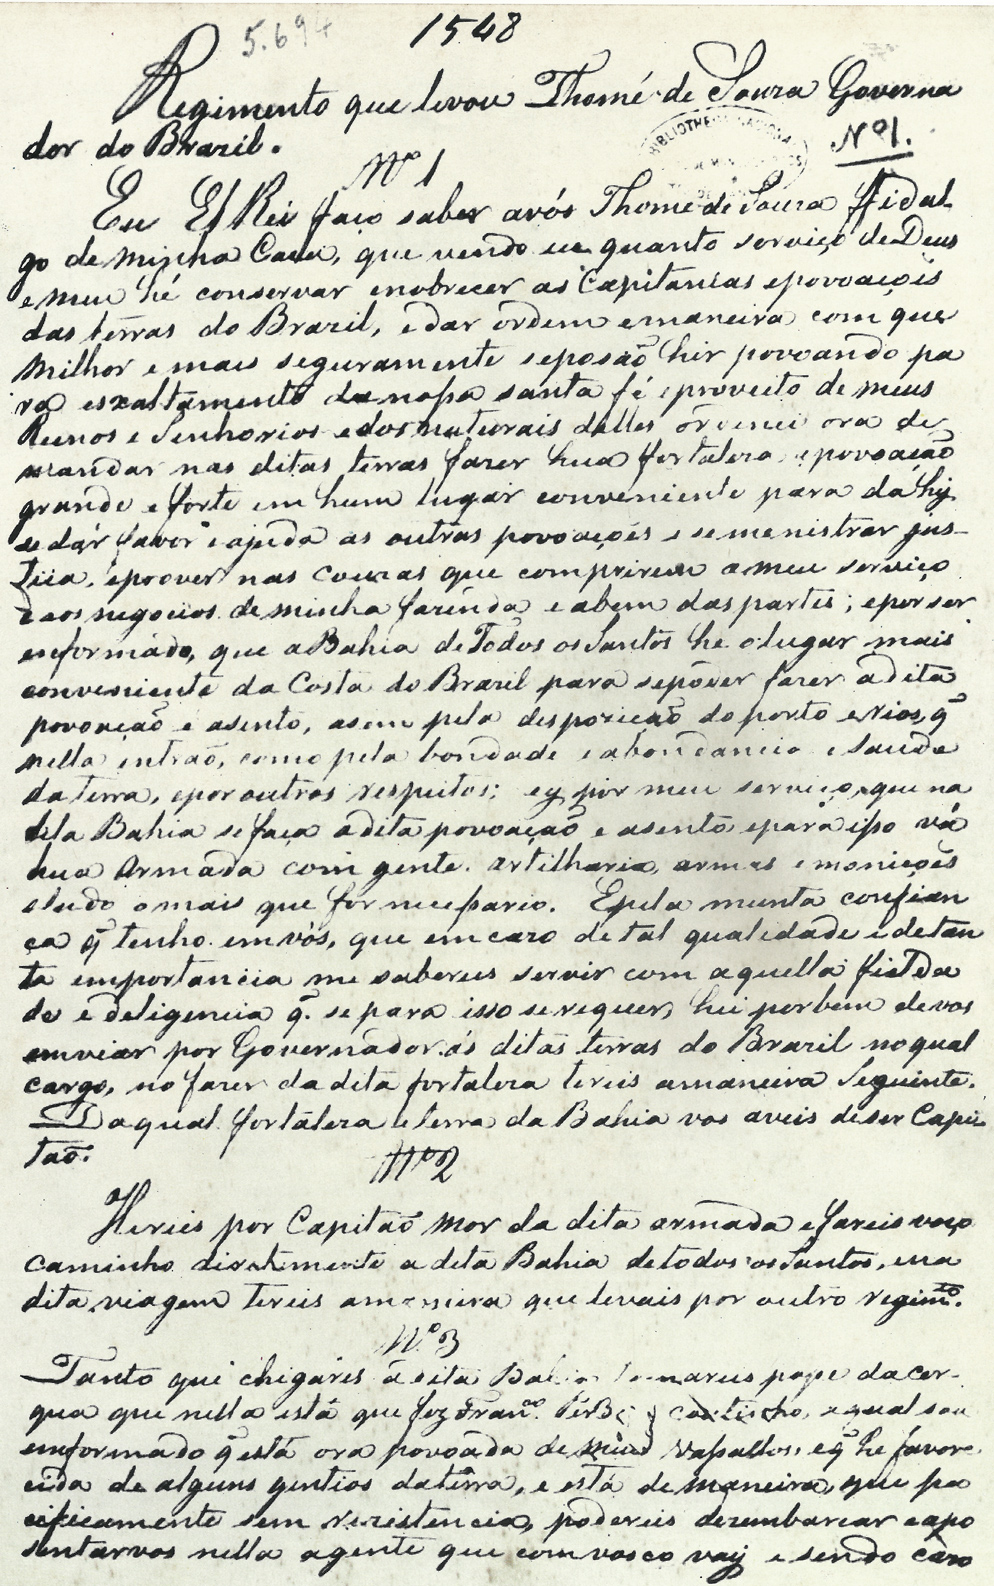 5.694
1548
Regimento que levou Thomé de Souza Governa
dor do Brazil.
BIBLIOTHECA NACIONAL
Nº 1.
Nº 1
Eu El Rei faço saber avós Thomé de Souza ffidal-
go de minha Caza, que vendo eu quanto serviço de Deus
e meu hé conservar enobrecer as Capitanias e povoações
das terras do Brazil, e dar ordem e maneira com que
milhor e mais seguramente se posaõ hir povoando pa
ra exaltamento da nossa santa fé e proveito de meus
Reenos e Senhorios e dos naturais delles ordenei ora de
mandar nas ditas terras fazer hua fortaleza e povoaçaõ
grande e forte em hum lugar conveniente para dahy
se dár favor e ajuda as outras povoações e se menistrar jus-
tiça, e proover nas couzas que comprirem a meu serviço
e aos negocios de minha fazenda e a bem das partes; e por ser
enformádo, que a Bahia de Todos os Santos he o lugar mais
conveniente da Costa do Brazil para se póder fazer a dita
povoaçaõ e asento, asem pela despoziçaõ do porto e rios, q̃
nella entraõ, como pela bondade e abondancia e saude
da terra, e por outros respeitos; ey por meu serviço, que na
dita Bahia se faça a dita povoaçaõ e asento e para isso vá
hua Armada com gente. artilharia, armas e monições
e tudo o mais que for necessario. E pela muuta confian
ça q̃ tenho em vós, que em cazo de tal qualidade e de tan
ta emportancia me sabereis servir com aquella fielda
de e deligencia q̃. se para isso se requer, hei por bem de vos
enviar por Governador ás ditas terras do Brazil no qual
cargo, no fazer da dita fortaleza tereis a maneira Seguinte.
Da qual fortaleza e terra da Bahia vos aveis de ser Capi-
taõ.
Nº 2
Hereis por Capitaõ mor da dita armada e fareis voço
caminho diretamente a dita Bahia de todos os Santos, e na
dita viagem tereis a maneira que levais por outro regimto.
Nº 3
Tanto que chegáres á dita Bahia tomareis posse da cer-
qua que nella está que fez Franco. Pér.ª Coutinho, a qual sou
enformado q̃ está ora povoada de meus vassallos, e q̃ he favore-
cida de alguns gentios da térra, e está de maneira, que pa
cificamente sem rezistencia, podereis dezembarcar e apo
sentarvos nella a gente que com vosco vay e sendo cazo